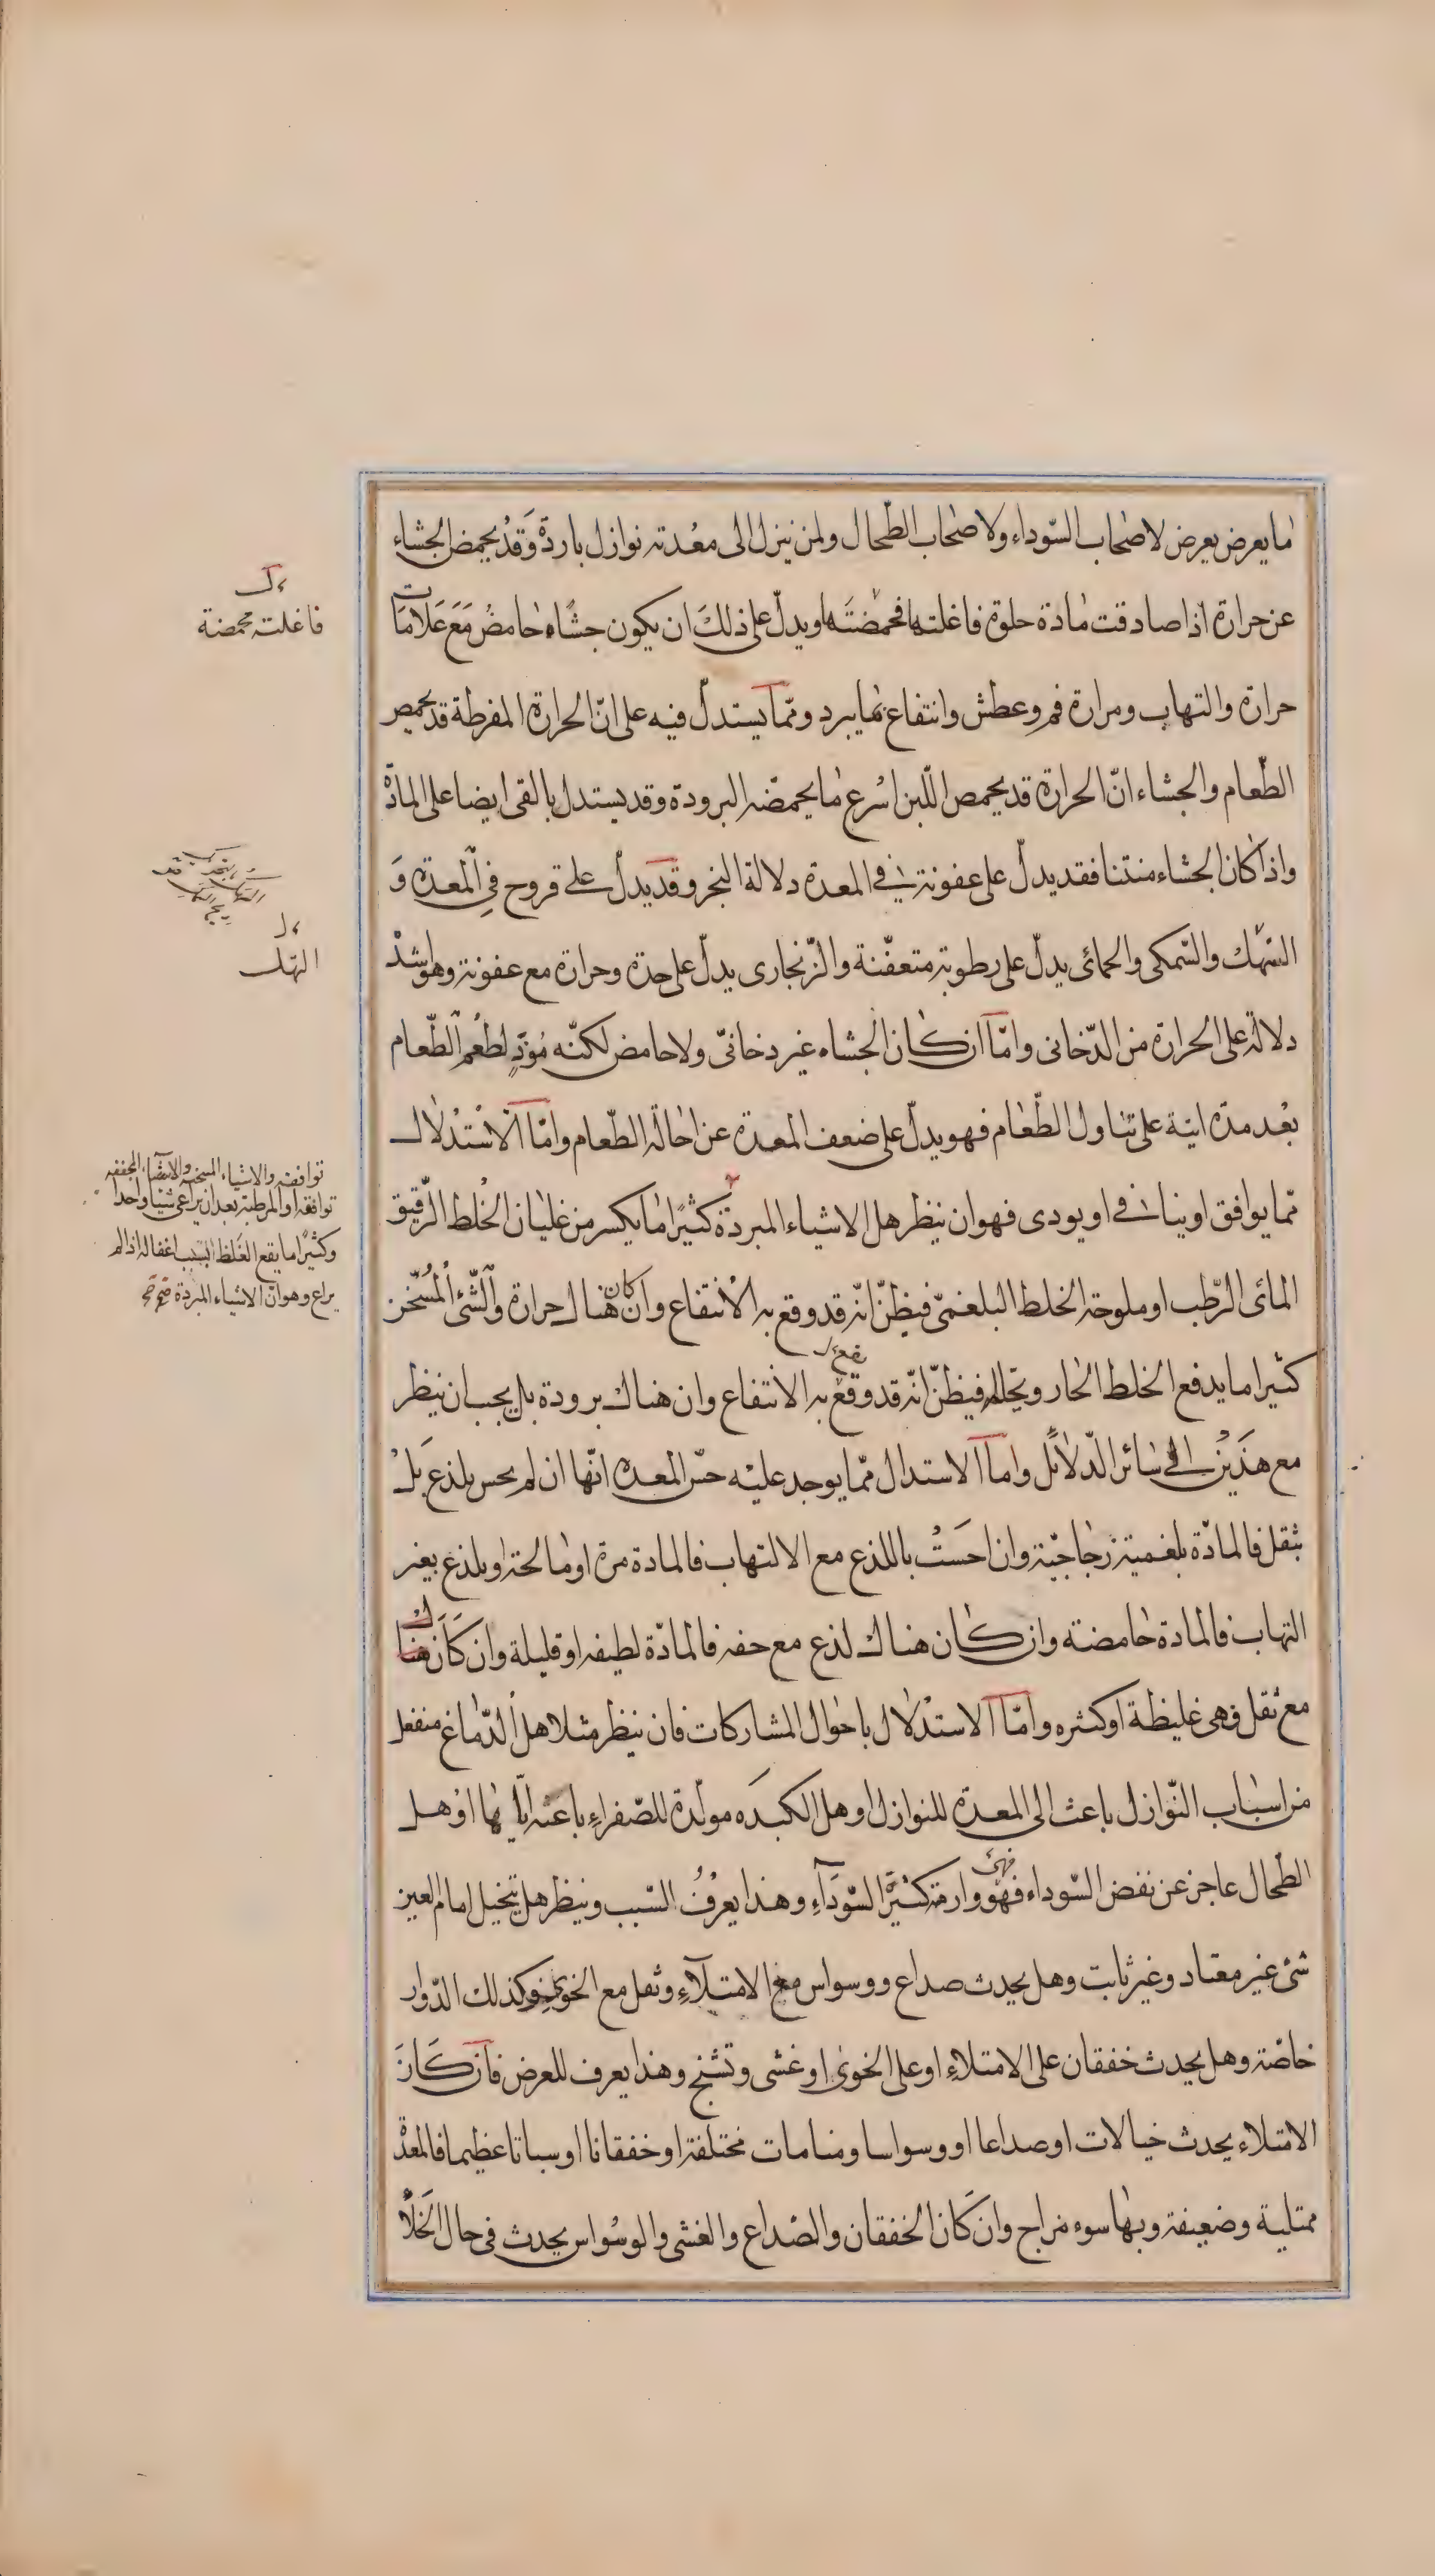 ما يعرض يعرض لاصحاب السّوداء ولاصحاب الطّحال ولمن ينزل الى معدته نوازل باردة وَقَدْ يحمض الجشاء
عن حرارة اذا صادقت مادة حلوة فاغلتها فحمضَتَها ويدلّ على ذلكَ ان يكون جشاء حامضُ مَعَ عَلامات
حرارة والتهاب ومرارة فم وعطش وانتفاع بما يبرد وممّا يستدلّ فيه على انّ الحرارة المفرطة قد يحمص
الطّعام والجشاء انّ الحرارة قد يحمص اللّبن اسْرع ما يحمضّه البرودة وقد يستدل بالقى ايضا على المادّة
واذا كان الجشاء منتنا فقد يدلّ على عفونة فى المعدة دلالة البخر وقد يدلّ على قروح فى المعدة وَ
السّهك والسّمكى والحمائى يدلّ على رطوبة متعفّنة والزّنجارى يدلّ على حدة وحرارة مع عفونة وهو اشدْ
دلالة على الحرارة من الدّخانى وامّا ان كان الجشاء غير دخانىّ ولا حامض لكنّه مُؤدٍّ لطَعْم الطّعام
بعْد مدّة اتية على تناول الطّعام فهو يدلّ على ضعف المعدة عن احالة الطّعام وامّا الاسْتدْلال
ممّا يوافق او ينافى او يودى فهو ان ينظر هل الاشياء المبردّة كثيرًا ما يكسر من غليان الخُلط الرّقيق
المائى الرّطب او ملوحة الخلط البلغمىّ فيظنّ انّه قد وقع به الانتفاع وان كان هناك حرارة والشّئ المُسخّن
كثيرا ما يدفع الخلط الحار ويحلله فيظنّ انّه قد وقع به الانتفاع وان هناك برودة بل يجب ان ينظر
مع هَذَيْن الى سائر الدّلائل وامّا الاستدال ممّا يوجد عليْه حسّ المعدة انّها ان لم يحس بلذع بَلْ
بثقل فالمادّة بلغمية زجاجيّة وان احسَتْ باللذع مع الالتهاب فالمادة مرة او مالحة او بلذع بغير
التهاب فالمادة حامضة وان كان هناك لذع مع خفه فالمادّة لطيفه او قليلة وان كَانَ هناك
مع ثقل فهى غليظة او كثره وامّا الاستدْلال باحوال المشاركات فان ينظر مثلا هل الدّماغ منفعل
من اسباب النّوازل باعث الى المعدة للنوازل او هل الكبدَه مولّدة للصّفراء باعثه اياها اوْ هل
الطّحال عاجز عن نفض السّوداء فهو وارمة كثيرًا السّودَاءِ وهذا يعرفُ السّبب وينظر هل يتخيل امام العين
شئ غير معتاد وغير ثابت وهل يحدث صداع ووسواس مع الامتلآءِ وثقل مع الخوى وكذلك الدّوار
خاصّة وهل يحدث خفقان على الامتلاءِ او على الخوى او غشى وتشنج وهذا يعرف للعرض فان كَانَ
الامتلاء يحدث خيالات او صداعا او وسواسا ومنامات مختلفة او خفقانا او سباتا عظيما فالمعدْة
ممتلية وضعيفة وبها سوء مزاج وان كَان الخفقان والصّداع والغشى والوسْواس يحدث فى حال الخَلأ
فاغلته محمضة
النهك
توافقه والاشياء المسخنه والاشياء المجففه
توافقه او المرطبة بعد ان يراعى شيئا واحدا
وكثيرًا ما يقع الغلط بسبب اغفاله اذا لم
يراع وهو انّ الاشياء المبردة صح